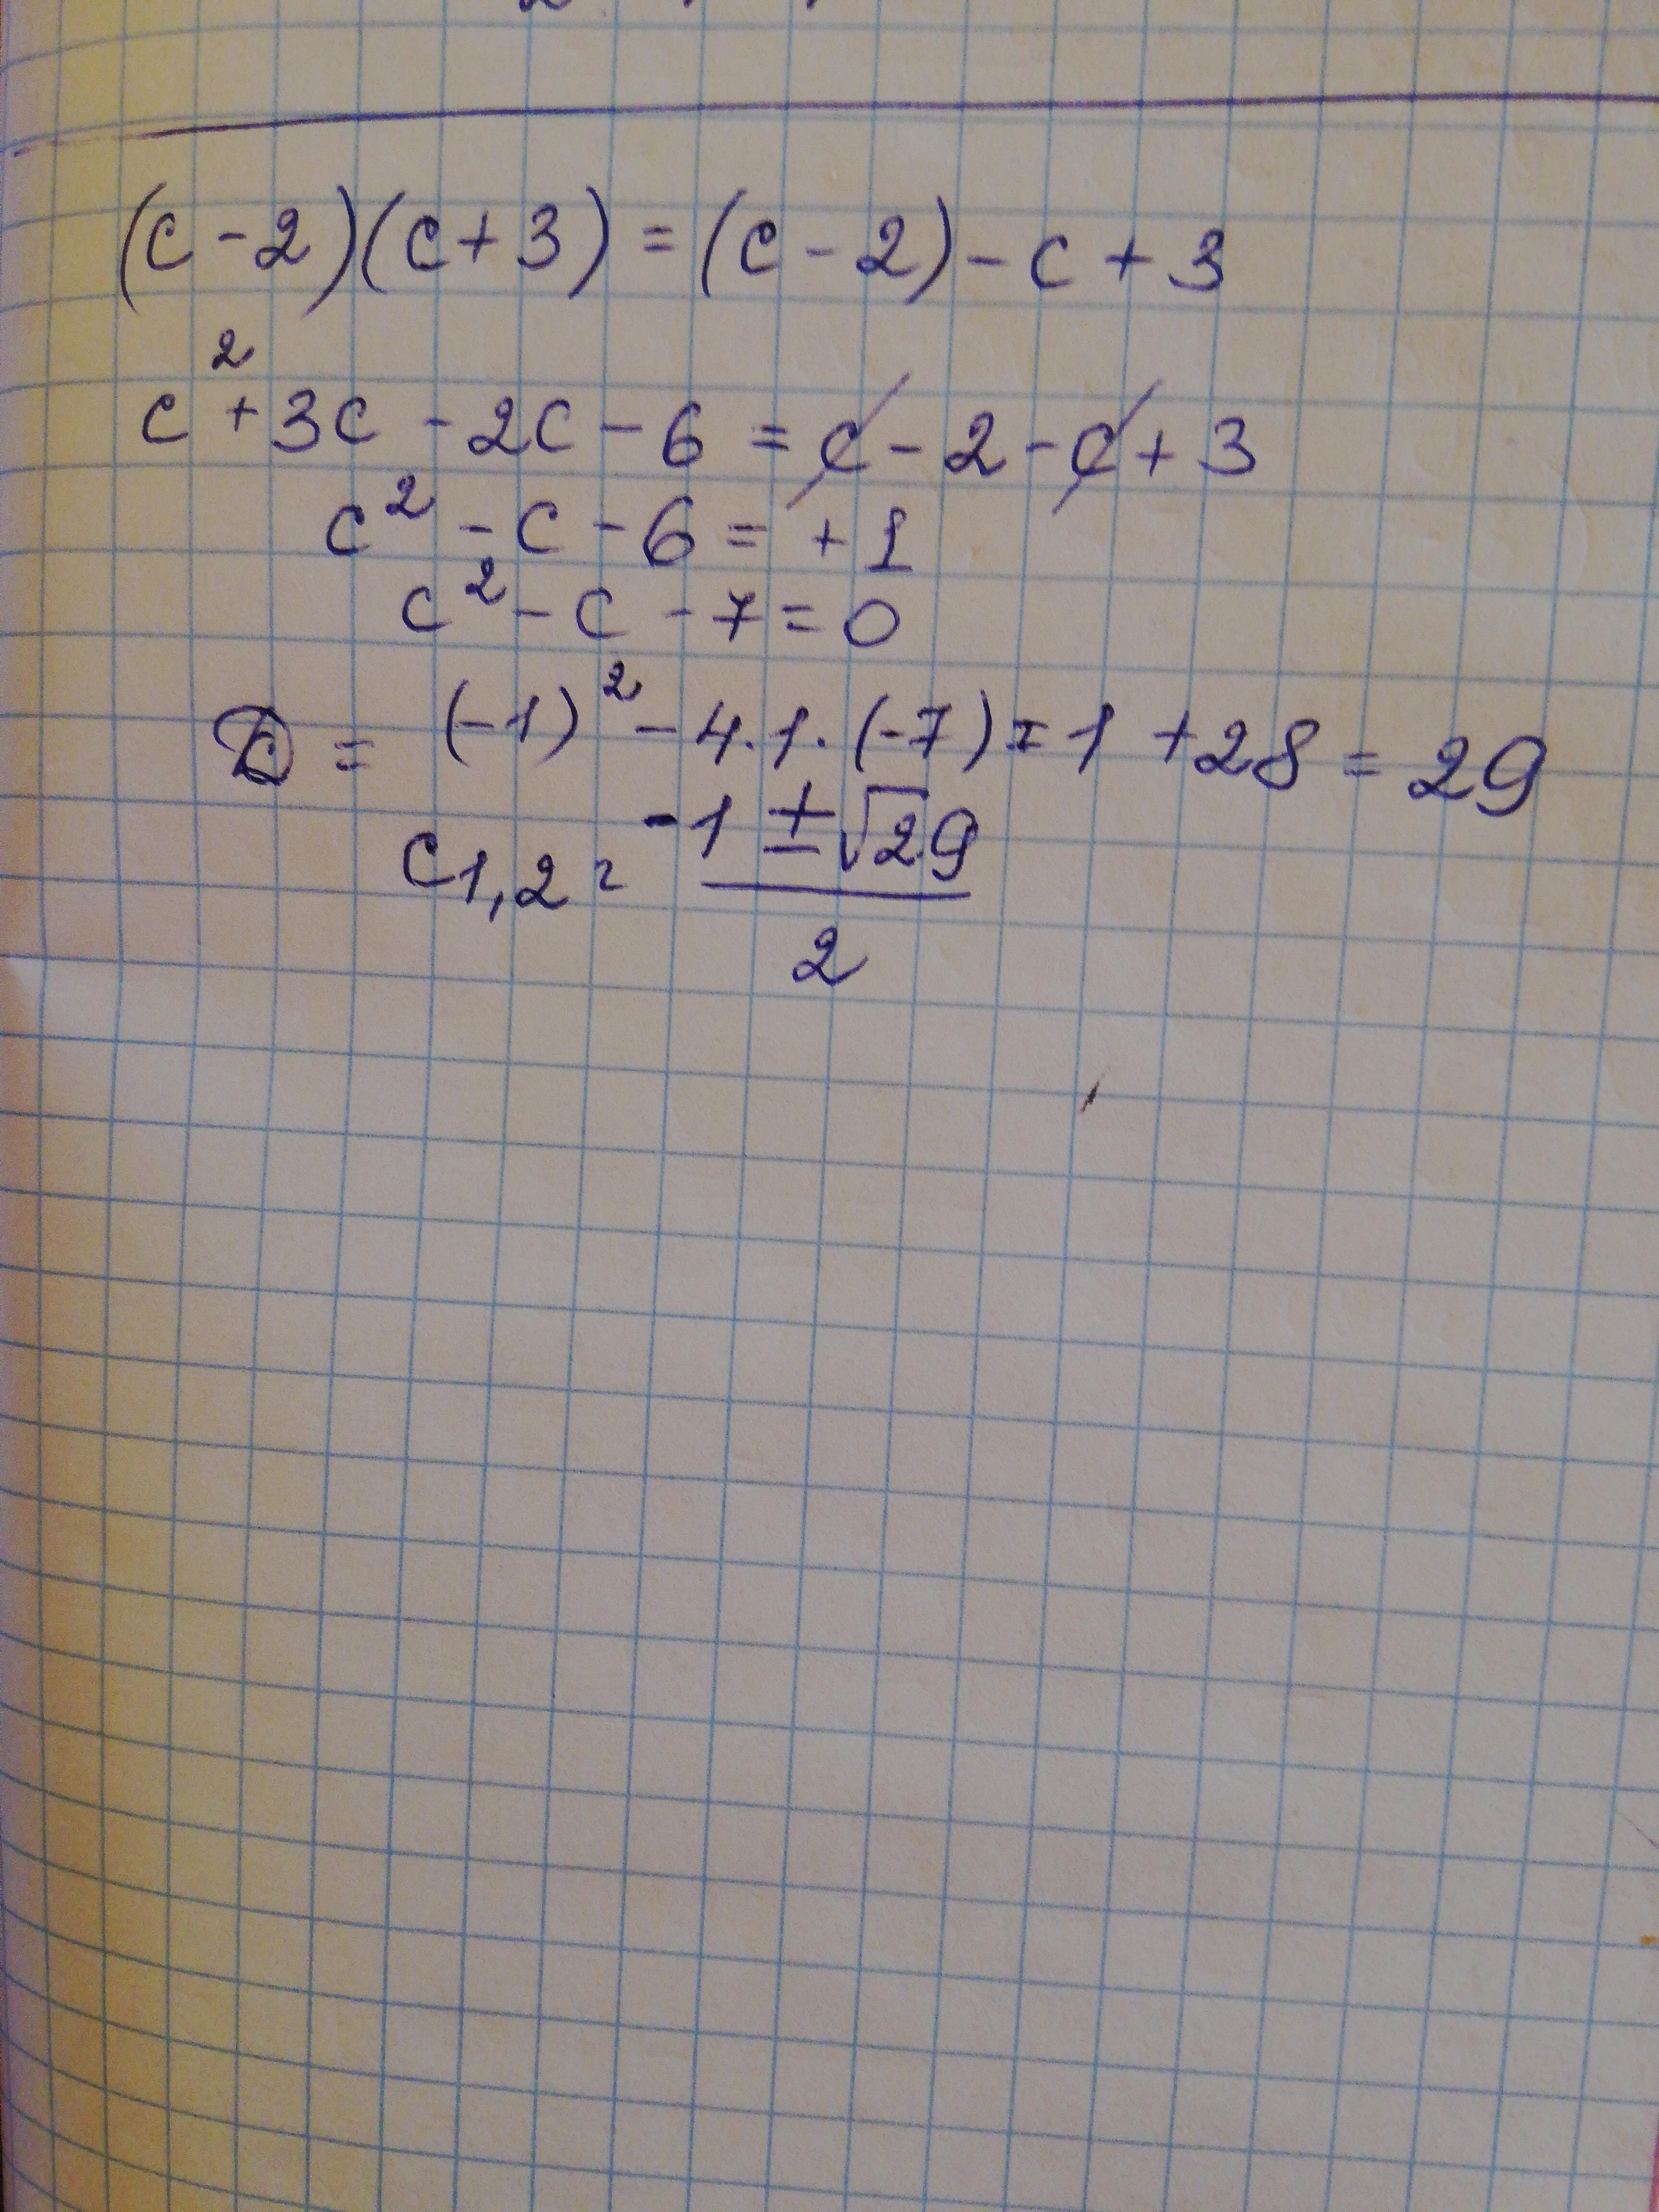 (c - 2)(c + 3) = (c - 2) - c + 3
c² + 3c - 2c - 6 = c - 2 - c + 3
c² - c - 6 = + 1
c² - c - 7 = 0
D = (-1)² - 4 · 1 · (-7) = 1 + 28 = 29
c1,2 = -1 ± √29
2